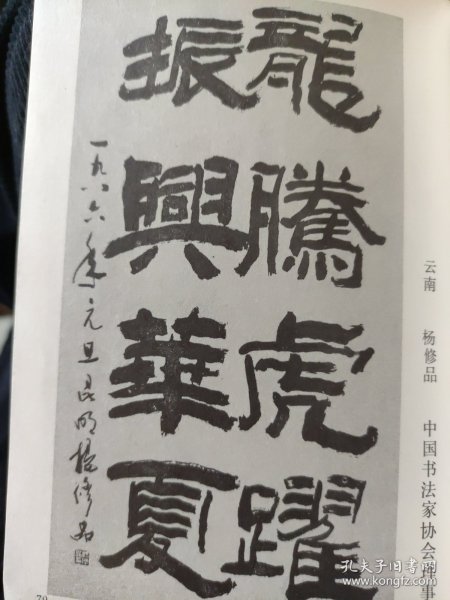 龍騰虎躍
振興華夏
一九八六年元旦昆明楊修品
云南 杨修品 中国书法家协会理事
孔夫子旧书网